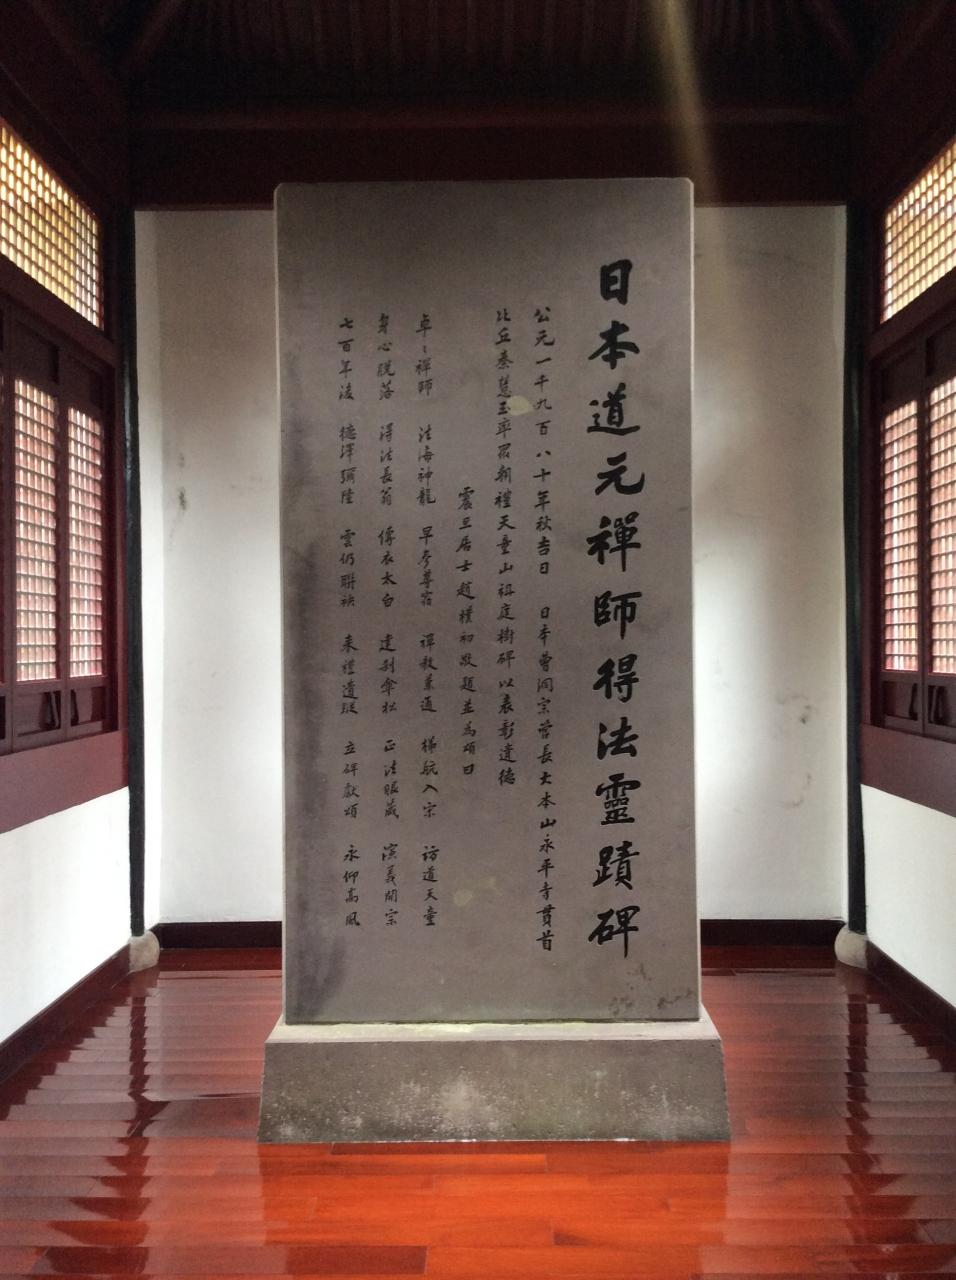 日本道元禪師得法靈蹟碑
公元一千九百八十年秋吉日 日本曹洞宗管長大本山永平寺貫首
比丘秦慧玉率眾朝禮天童山祖庭樹碑以表彰遺德
震旦居士趙樸初敬題並為頌曰
卓々禪師 法海神龍 早參尊宿 禪教兼通 梯航入宗 訪道天童
身心脫落 得法長翁 傳衣太白 達刹傘松 正法眼藏 演義開宗
七百年後 德澤彌陸 雲仍聯袂 来禮遺蹤 立碑獻頌 永仰高風